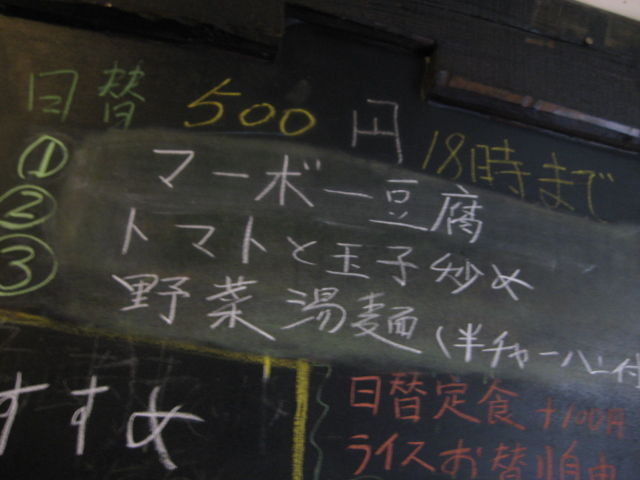 日替 500円 18時まで
① マーボー豆腐
② トマトと玉子炒め
③ 野菜湯麺 (半チャーハン付
すすめ
日替定食 +100円
ライスお替り自由